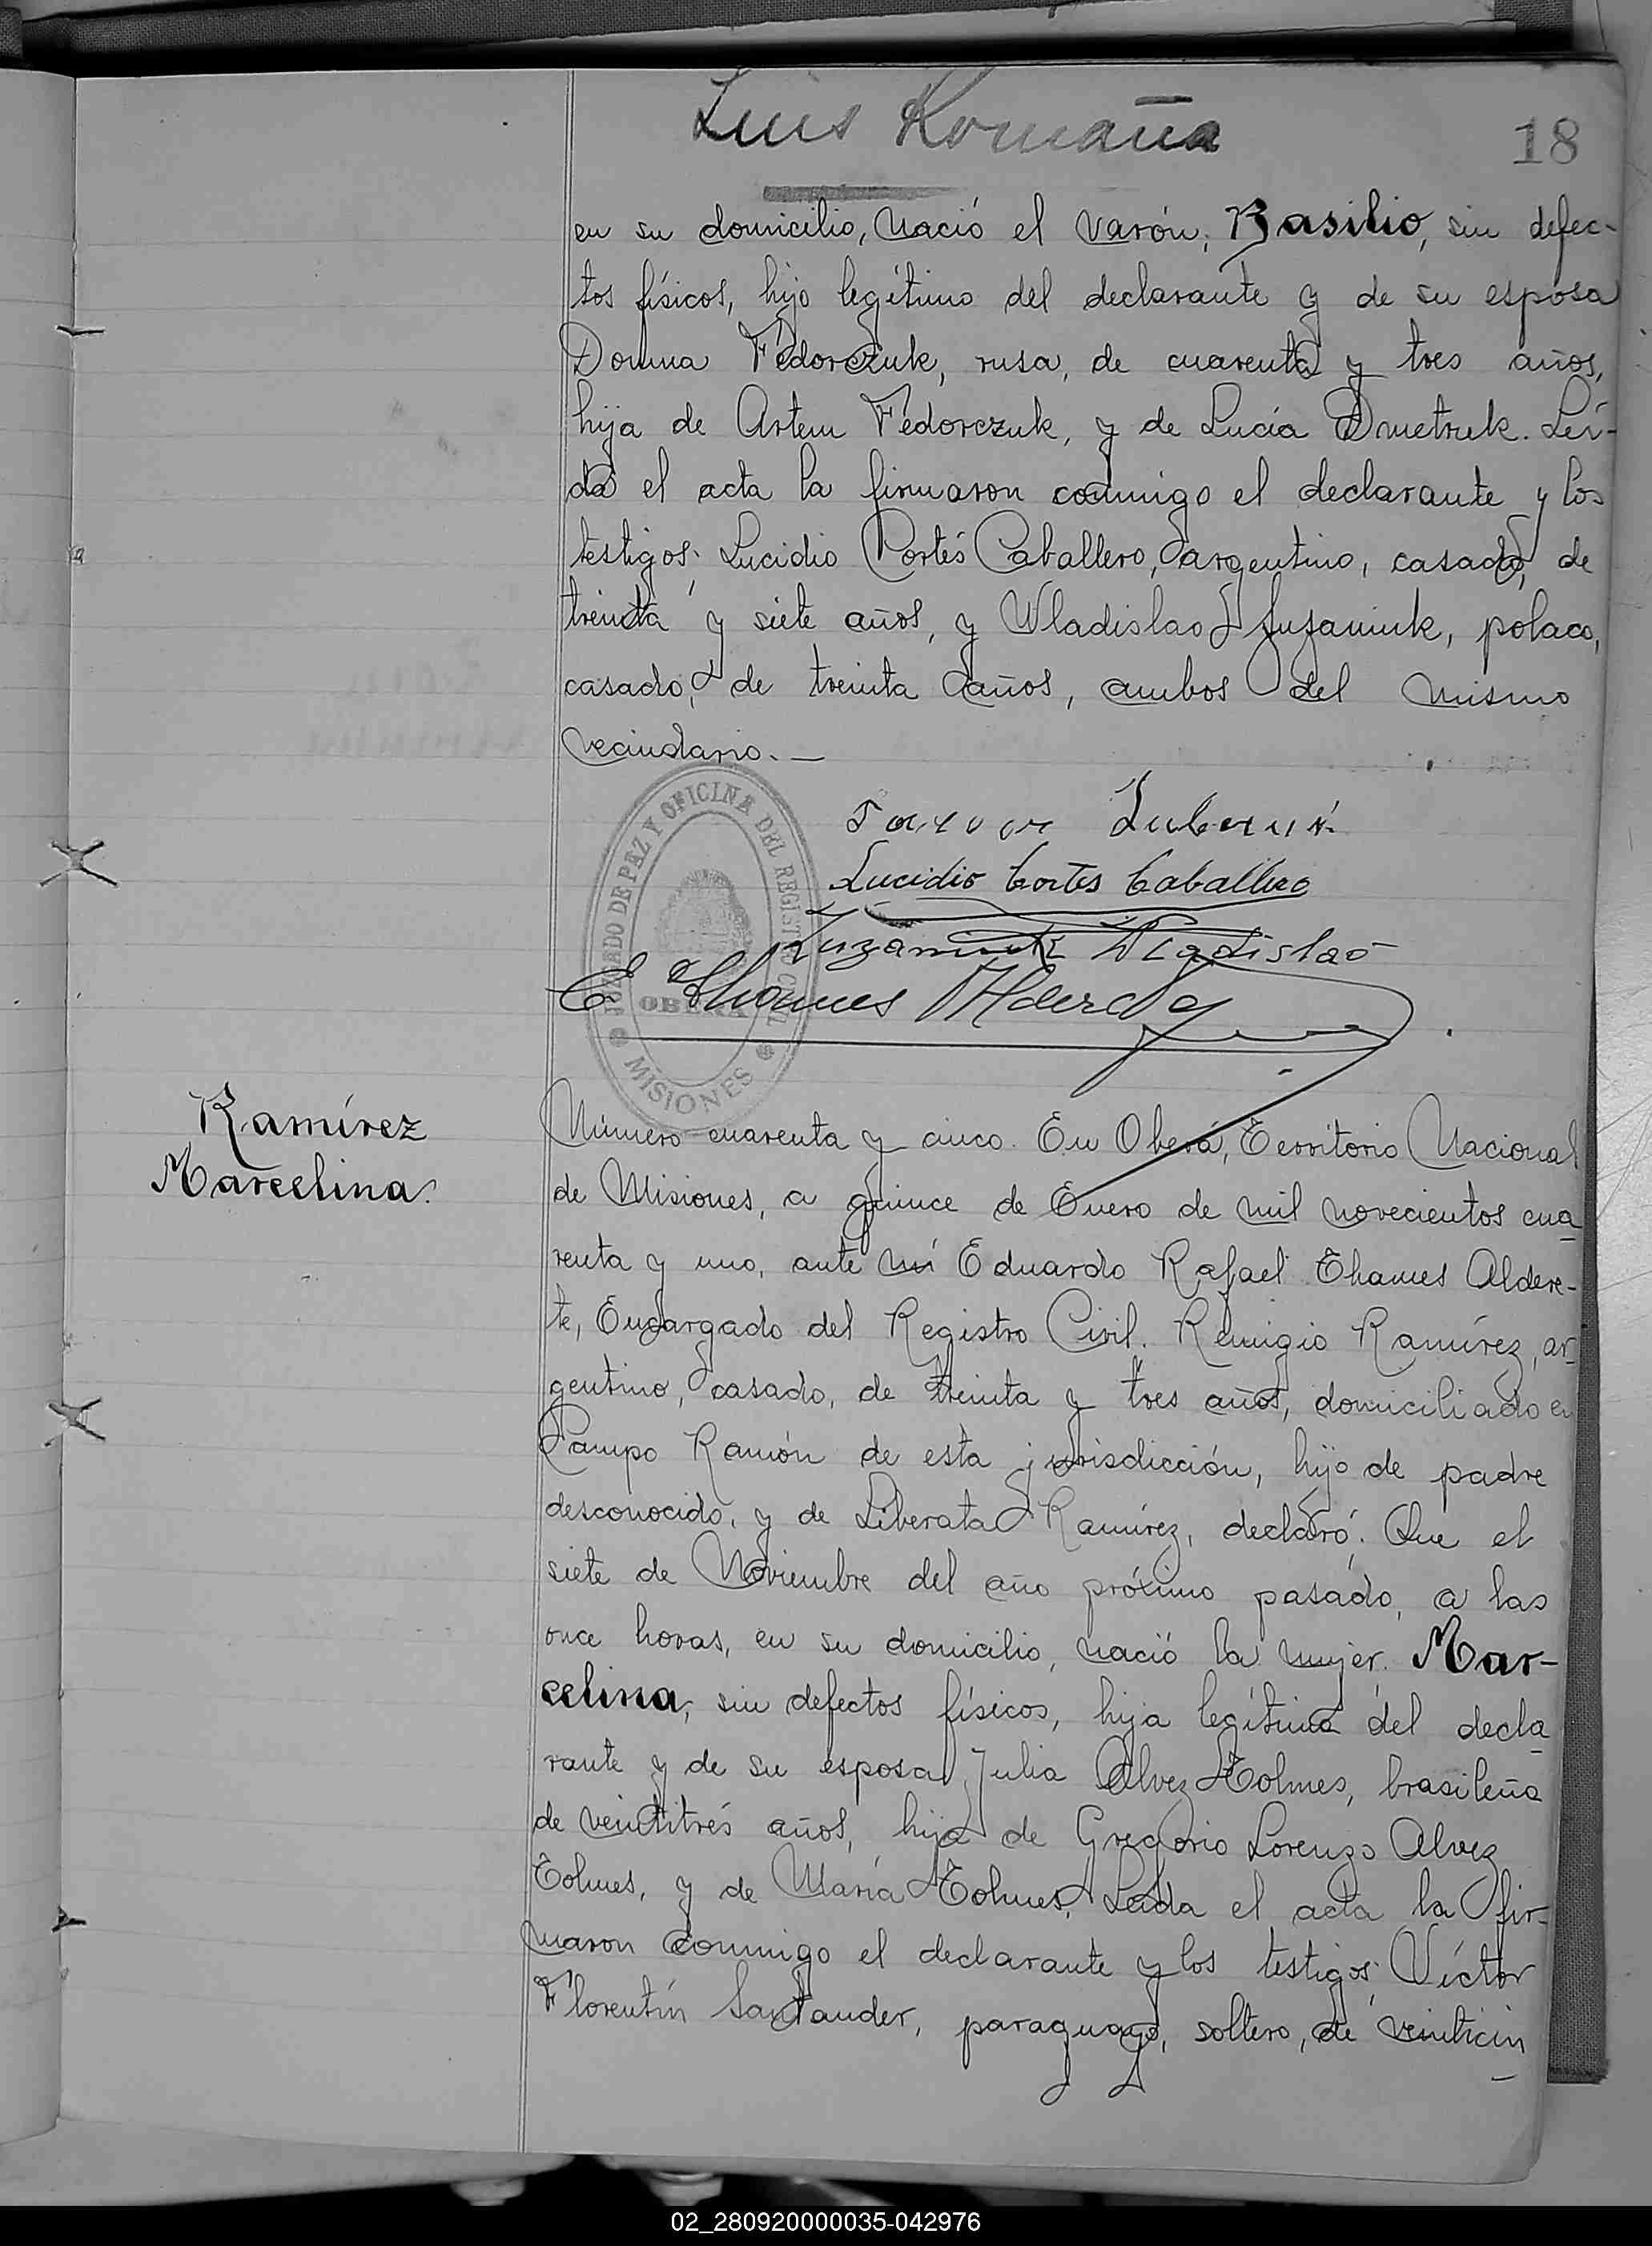 Luis Romaña
18
en su domicilio, nació el varón, Basilio, sin defec-
tos físicos, hijo legítimo del declarante y de su esposa
Domna Fedorczuk, rusa, de cuarenta y tres años,
hija de Artem Fedorczuk, y de Lucía Dmetruk. Leí-
da el acta la firmaron conmigo el declarante y los
testigos: Lucidio Cortés Caballero, argentino, casado, de
treinta y siete años, y Wladislao Juzaniuk, polaco,
casado, de treinta años, ambos del mismo
vecindario. —
Lucidio Cortes Caballero
Wladislao
E Thames Alderete
JUZGADO DE PAZ Y OFICINA DEL REGISTRO CIVIL
OBERA
MISIONES
Ramírez
Marcelina.
Número cuarenta y cinco. En Oberá, Territorio Nacional
de Misiones, a quince de Enero de mil novecientos cua
renta y uno, ante mí Eduardo Rafael Thames Aldere-
te, Encargado del Registro Civil. Remigio Ramírez, ar-
gentino, casado, de treinta y tres años, domiciliado en
Campo Ramón de esta jurisdicción, hijo de padre
desconocido, y de Liberata Ramírez, declaró: Que el
siete de Noviembre del año próximo pasado, a las
once horas, en su domicilio, nació la mujer: Mar-
celina, sin defectos físicos, hija legítima del decla
rante y de su esposa Julia Alvez Tolmes, brasileña
de veintitrés años, hija de Gregorio Lorenzo Alvez
Tolmes, y de María Tolmes. Leída el acta la fir-
maron conmigo el declarante y los testigos: Víctor
Florentín Santander, paraguayo, soltero, de veinticin
02_280920000035-042976